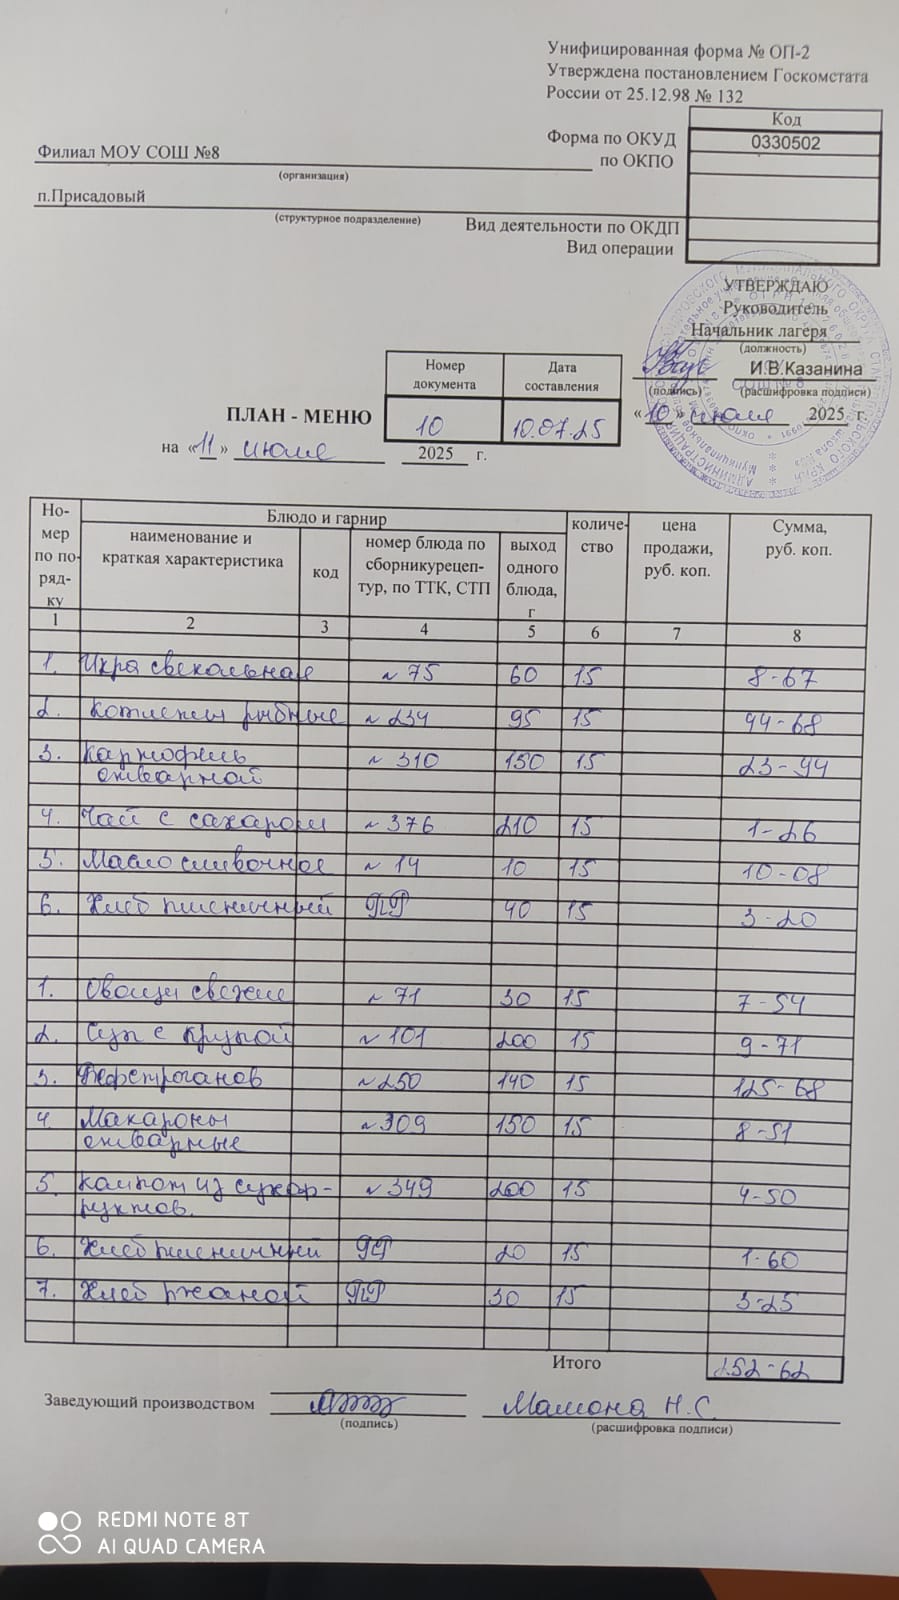 Унифицированная форма № ОП-2
Утверждена постановлением Госкомстата
России от 25.12.98 № 132
Код
Форма по ОКУД 0330502
Филиал МОУ СОШ №8 по ОКПО
(организация)
п.Присадовый
(структурное подразделение) Вид деятельности по ОКДП
Вид операции
УТВЕРЖДАЮ
Руководитель
Начальник лагеря
(должность)
И.В.Казанина
(подпись) (расшифровка подписи)
«10» июля 2025 г.
Номер документа Дата составления
ПЛАН - МЕНЮ 10 10.07.25
на «11» июля 2025 г.
Но-мер по по-ряд-ку Блюдо и гарнир количе-ство цена продажи, руб. коп. Сумма, руб. коп.
наименование и краткая характеристика код номер блюда по сборникурецеп-тур, по ТТК, СТП выход одного блюда, г
1 2 3 4 5 6 7 8
1. Икра свекольная № 75 60 15 8-67
2. Котлеты рыбные № 234 95 15 44-68
3. Картофель № 310 150 15 23-94
отварной
4. Чай с сахаром № 376 210 15 1-26
5. Масло сливочное № 14 10 15 10-08
6. Хлеб пшеничный ПР 40 15 3-20
1. Овощи свежие № 71 30 15 7-54
2. Суп с крупой № 101 200 15 9-71
3. Бефстроганов № 250 140 15 125-68
4. Макароны № 309 150 15 8-51
отварные
5. Компот из сухоф- № 349 200 15 4-50
руктов.
6. Хлеб пшеничный ПР 20 15 1-60
7. Хлеб ржаной ПР 30 15 3-25
Итого 252-62
Заведующий производством Мамона Н.С.
(подпись) (расшифровка подписи)
REDMI NOTE 8T
AI QUAD CAMERA